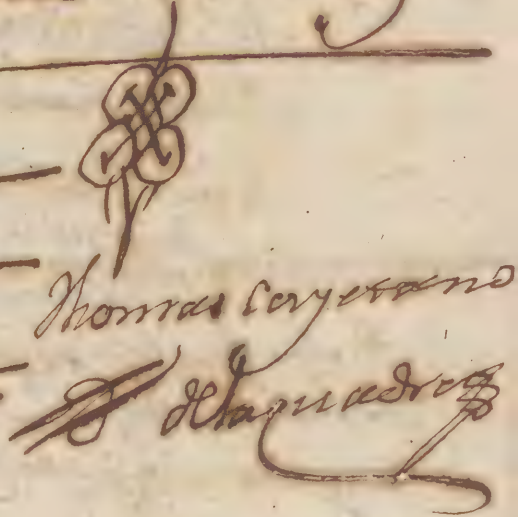 Thomas Cayetano
de la quadra